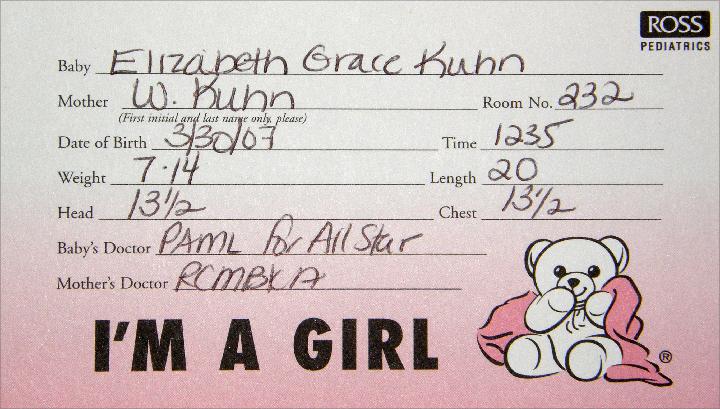 ROSS
PEDIATRICS
Baby Elizabeth Grace Kuhn
Mother W. Kuhn Room No. 232
(First initial and last name only, please)
Date of Birth 3/30/07 Time 1235
Weight 7-14 Length 20
Head 13 1/2 Chest 13 1/2
Baby's Doctor PAML for All Star
Mother's Doctor
I'M A GIRL
®